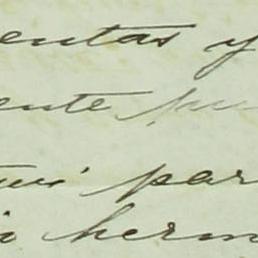 entas y
ente pu
tui par
i herm